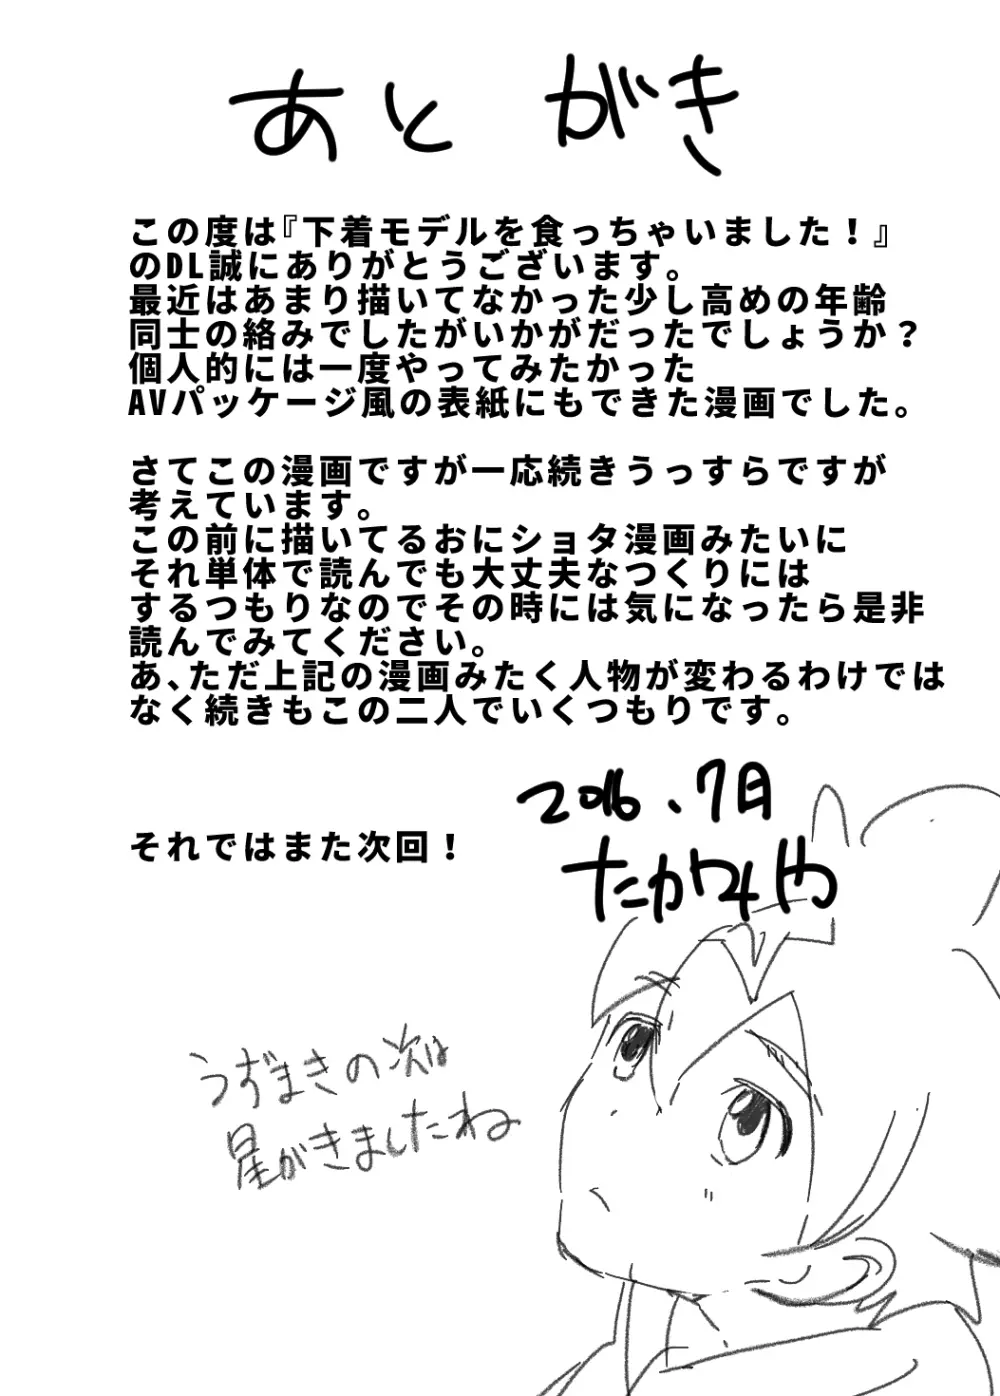 あとがき
この度は『下着モデルを食っちゃいました！』
のDL誠にありがとうございます。
最近はあまり描いてなかった少し高めの年齢
同士の絡みでしたがいかがだったでしょうか？
個人的には一度やってみたかった
AVパッケージ風の表紙にもできた漫画でした。
さてこの漫画ですが一応続きうっすらですが
考えています。
この前に描いてるおにショタ漫画みたいに
それ単体で読んでも大丈夫なつくりには
するつもりなのでその時には気になったら是非
読んでみてください。
あ、ただ上記の漫画みたく人物が変わるわけでは
なく続きもこの二人でいくつもりです。
2016、7月
それではまた次回！
うずまきの次は
星がきましたね